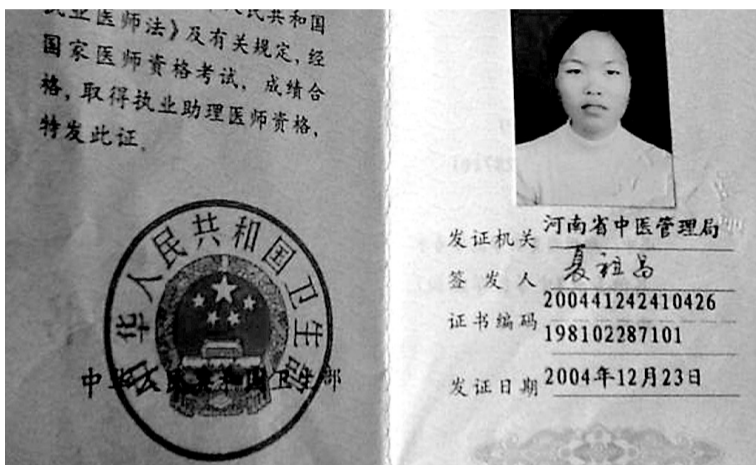 人民共和国
执业医师法》及有关规定，经
国家医师资格考试，成绩合
格，取得执业助理医师资格，
特发此证。
中华人民共和国卫生部
中华人民共和国卫生部
发证机关 河南省中医管理局
签发人 夏祖昌
200441242410426
证书编码
198102287101
发证日期 2004年12月23日